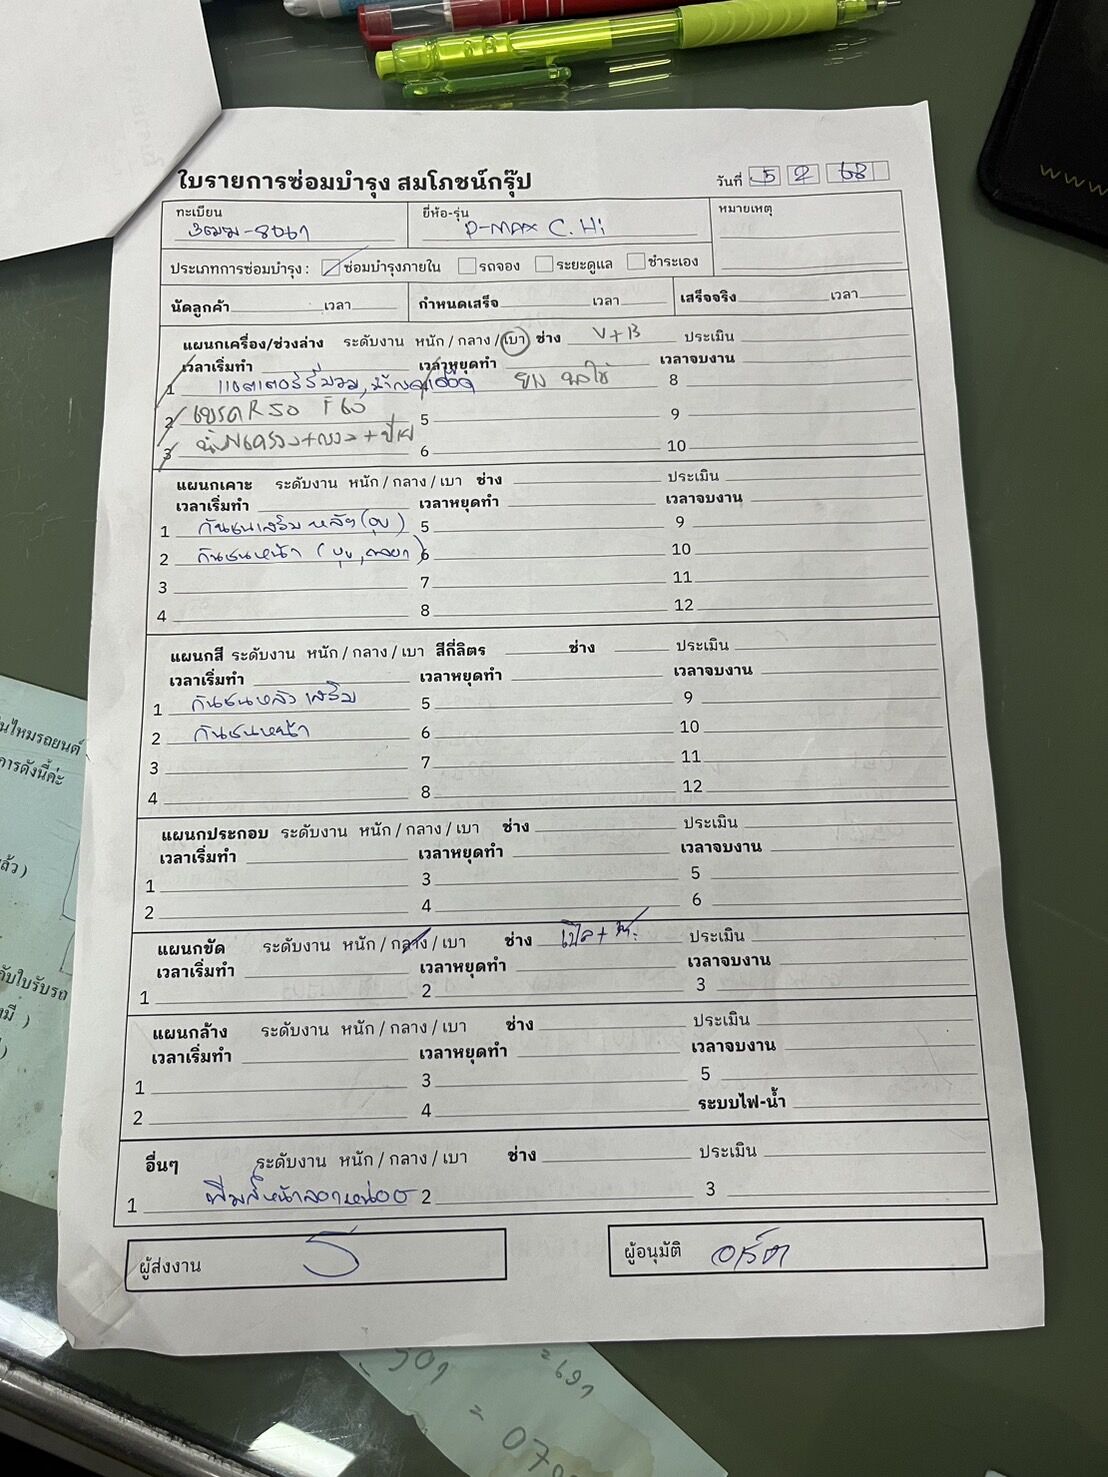 ใบรายการซ่อมบำรุง สมโภชน์กรุ๊ป
วันที่ 5 2 68
ทะเบียน 3ฒฆ-8067
ยี่ห้อ-รุ่น D-MAX C. Hi
หมายเหตุ
ประเภทการซ่อมบำรุง : ซ่อมบำรุงภายใน รถจอง ระยะดูแล ชำระเอง
นัดลูกค้า เวลา กำหนดเสร็จ เวลา เสร็จจริง เวลา
แผนกเครื่อง/ช่วงล่าง ระดับงาน หนัก / กลาง / เบา ช่าง V+B ประเมิน
เวลาเริ่มทำ เวลาหยุดทำ เวลาจบงาน
1 แบตเตอรี่บวม, 8
2 เบรค R 50 F 60 5 9
3 6 10
แผนกเคาะ ระดับงาน หนัก / กลาง / เบา ช่าง ประเมิน
เวลาเริ่มทำ เวลาหยุดทำ เวลาจบงาน
1 กันชนเสริมหลัง (บุบ) 5 9
2 กันชนหน้า 6 10
3 7 11
4 8 12
แผนกสี ระดับงาน หนัก / กลาง / เบา สีกี่ลิตร ช่าง ประเมิน
เวลาเริ่มทำ เวลาหยุดทำ เวลาจบงาน
1 กันชนหลัง เสริม 5 9
2 กันชนหน้า 6 10
3 7 11
4 8 12
แผนกประกอบ ระดับงาน หนัก / กลาง / เบา ช่าง ประเมิน
เวลาเริ่มทำ เวลาหยุดทำ เวลาจบงาน
1 3 5
2 4 6
แผนกขัด ระดับงาน หนัก / กลาง / เบา ช่าง ประเมิน
เวลาเริ่มทำ เวลาหยุดทำ เวลาจบงาน
1 2 3
แผนกล้าง ระดับงาน หนัก / กลาง / เบา ช่าง ประเมิน
เวลาเริ่มทำ เวลาหยุดทำ เวลาจบงาน
1 3 5
2 4 ระบบไฟ-น้ำ
อื่นๆ ระดับงาน หนัก / กลาง / เบา ช่าง ประเมิน
1 2 3
ผู้ส่งงาน
ผู้อนุมัติ อาร์ต